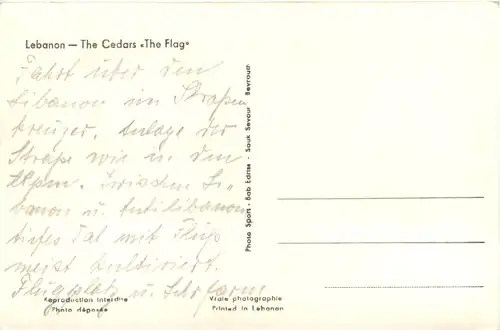 Lebanon — The Cedars «The Flag»
Fahrt über den
Libanon im Straßen
kreuzer. Anlage der
Straße wie in den
Alpen. Zwischen Li-
banon u. Antilibanon
tiefes Tal mit Fluß
meist kultiviert.
Flugplatz u.
Reproduction interdite
Photo déposée
Vraie photographie
Printed in Lebanon
Photo Sport - Bab Edriss - Souk Sayour - Beyrouth